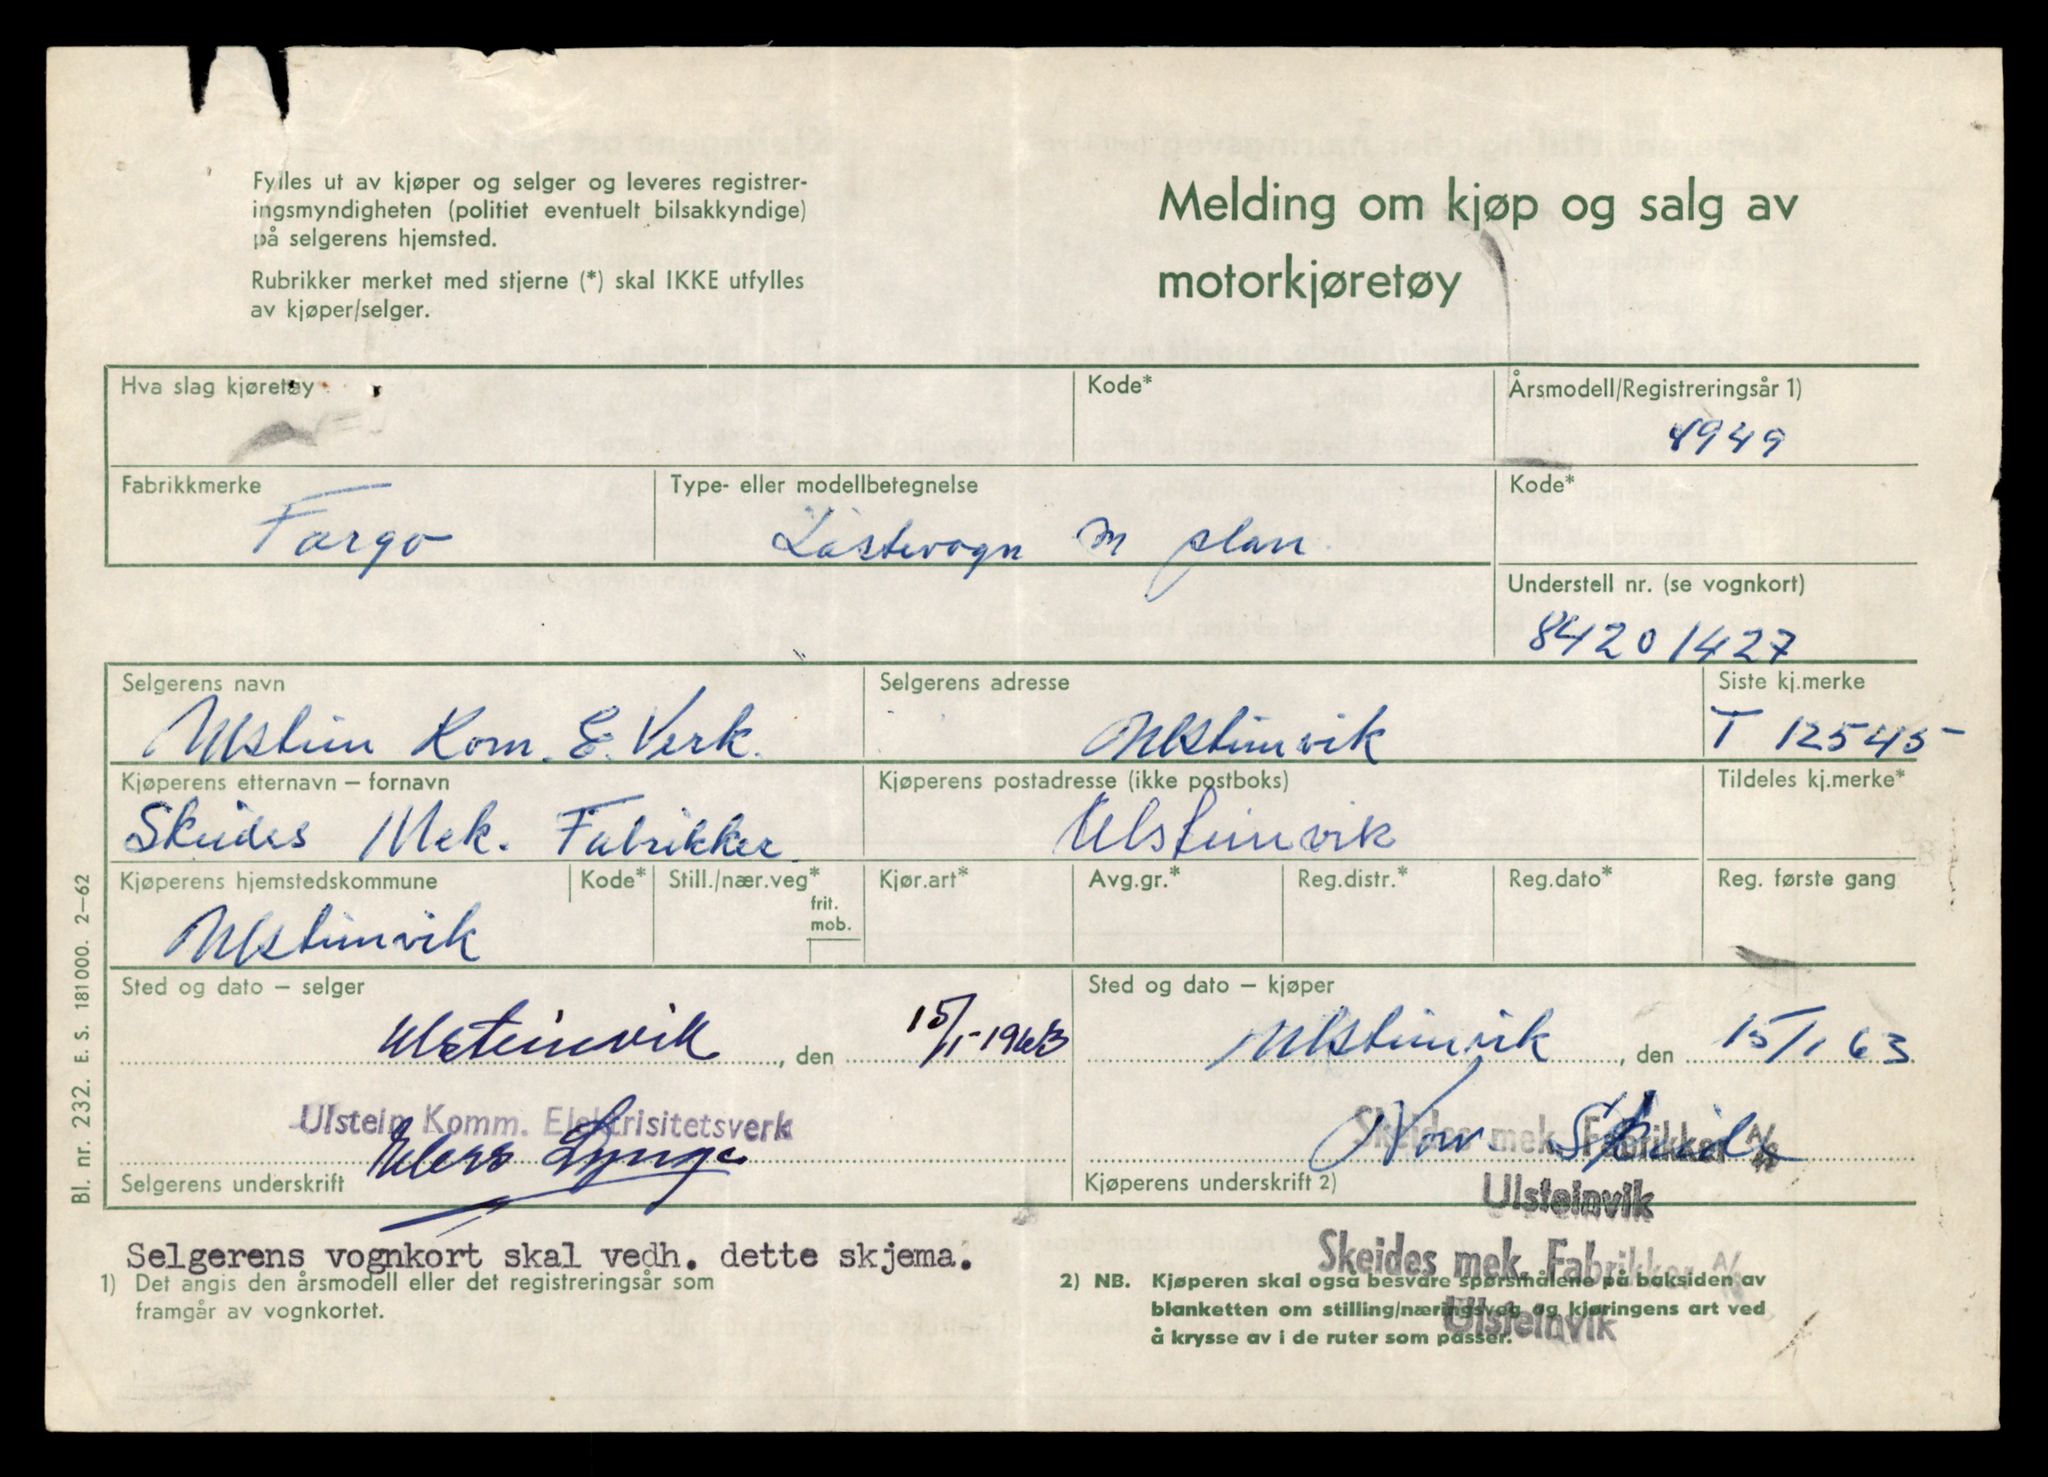 Fylles ut av kjøper og selger og leveres registrer-
ingsmyndigheten (politiet eventuelt bilsakkyndige)
på selgerens hjemsted.
Rubrikker merket med stjerne (*) skal IKKE utfylles
av kjøper/selger.
Melding om kjøp og salg av
motorkjøretøy
Hva slag kjøretøy
Kode*
Årsmodell/Registreringsår 1)
1949
Fabrikkmerke
Fargo
Type- eller modellbetegnelse
Lastevogn m plan
Kode*
Understell nr. (se vognkort)
84201427
Selgerens navn
Ulstein Kom. E. Verk.
Selgerens adresse
Ulsteinvik
Siste kj.merke
T 12545
Kjøperens etternavn – fornavn
Skeides Mek. Fabrikker
Kjøperens postadresse (ikke postboks)
Ulsteinvik
Tildeles kj.merke*
Kjøperens hjemstedskommune
Ulsteinvik
Kode*
Still./nær.veg*
frit.
mob.
Kjør.art*
Avg.gr.*
Reg.distr.*
Reg.dato*
Reg. første gang
Sted og dato – selger
Ulsteinvik, den 15/1-1963
Sted og dato – kjøper
Ulsteinvik, den 15/1 63
Ulstein Komm. Elektrisitetsverk
Lynge
Selgerens underskrift
Skeides mek. Fabrikker A/S
Ulsteinvik
Kjøperens underskrift 2)
Skeides mek. Fabrikker A/S
Ulsteinvik
Selgerens vognkort skal vedh. dette skjema.
1) Det angis den årsmodell eller det registreringsår som
framgår av vognkortet.
2) NB. Kjøperen skal også besvare spørsmålene på baksiden av
blanketten om stilling/næringsveg og kjøringens art ved
å krysse av i de ruter som passer.
Bl. nr. 232. E. S. 181000. 2–62